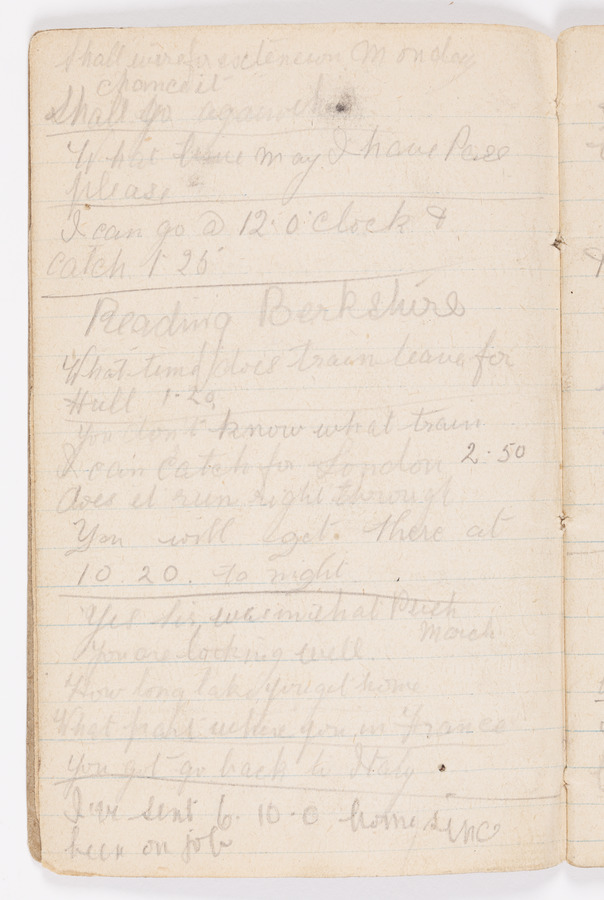 Shall wire for extension Monday
chance it
Shall go again
What time may I have Pass
please?
I can go @ 12.0'clock &
catch 1 25
Reading Berkshire
What time does train leave for
Hull 1.20.
You don't know what train
I can Catch for London 2.50
does it run right through
You will get there at
10.20. to night
Yes Sir was in that Push
March
You are looking well
How long take you get home
What part where you in France
You got go back to Italy
I've sent 6. 10.0 home since
been on job